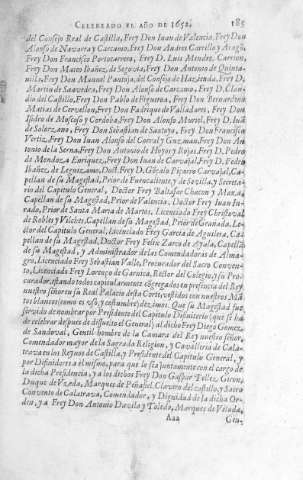 CELEBRADO EL AÑO DE 1652. 185
del Consejo Real de Castilla, Frey Don Iuan de Valencia, Frey Don
Alonso de Navarra y Carcamo, Frey Don Andres Carrillo y Aragõ,
Frey Don Francisco Portocarrero, Frey D. Luis Mendez Carrion,
Frey Don Mateo Ibañez de Segovia, Frey Don Antonio de Quinta-
nilla, Frey Don Manuel Pantoja, del Consejo de Hazienda, Frey D.
Martin de Saavedra, Frey Don Alonso de Carcamo, Frey D. Clau-
dio del Castillo, Frey Don Pablo de Figueroa, Frey Don Bernardino
Matias de Cervellon, Frey Don Fadrique de Valladares, Frey Don
Isidro de Moscoso y Cordoba, Frey Don Alonso Muriel, Frey D. Iuã
de Solorzano, Frey Don Sebastian de Santoyo, Frey Don Francisco
Vertiz, Frey Don Iuan Alonso del Corral y Guzman, Frey Don An-
tonio de la Serna, Frey Don Antonio de Hoyos y Rojas, Frey D. Pedro
de Mendoza Enriquez, Frey D. Iuan de Carvajal, Frey D. Pedro
Ibañez de Leguizamo, Dott. Frey D. Gonçalo Piçarro Carvajal, Ca-
pellan de su Magestad, Prior de Fuencaliente, y de Sevilla, y Secreta-
rio del Capitulo General, Doctor Frey Baltasar Chacon y
Capellan de su Magestad, Prior de Valencia, Doctor Frey Iuan
Prior de Santa Maria de Martos, Licenciado Frey Christoval
de Robles y Vilches, Capellan de su Magestad, Prior de Granada,
del Capitulo General, Licenciado Frey Garcia de Aguilera, Ca-
pellan de su Magestad, Doctor Frey Felix Zarco de Ayala, Capellã
de su Magestad, y Administrador de las Comendadoras de Almа-
gro, Licenciado Frey Sebastian Vallo, Procurador del Sacro Conven-
to, Licenciado Frey Lorenço de Garnica, Retor del Colegio, y su Pro-
curador, estando todos capitularmente cõgregados en presencia del Rey
nuestro señor en su Real Palacio desta Corte, vestidos con nuestros Mã-
tos blancos (como es uso, y costumbre) dezimos: Que su Magestad fue
servido de nombrar por Presidente del Capitulo Difinitorio (que se ha
de celebrar despues de disuelto el General) al dicho Frey Diego Gomez
de Sandoval, Gentil-hombre de la Camara del Rey nuestro señor,
Comendador mayor de la Sagrada Religion, y Cavalleria de Cala-
trava en los Reynos de Castilla, y Presidente del Capitulo General, y
por Difinidores a el mismo, para que lo sea juntamente con el cargo de
la dicha Presidencia, y a los dichos Frey Don Gaspar Tellez Giron,
Duque de Vzeda, Marques de Peñafiel, Clavero del castillo, y Sacro
Convento de Calatrava, Comendador, y Dignidad de la dicha Or-
den, y a Frey Don Antonio Davila y Toledo, Marques de Velada,
Aaa Gen-